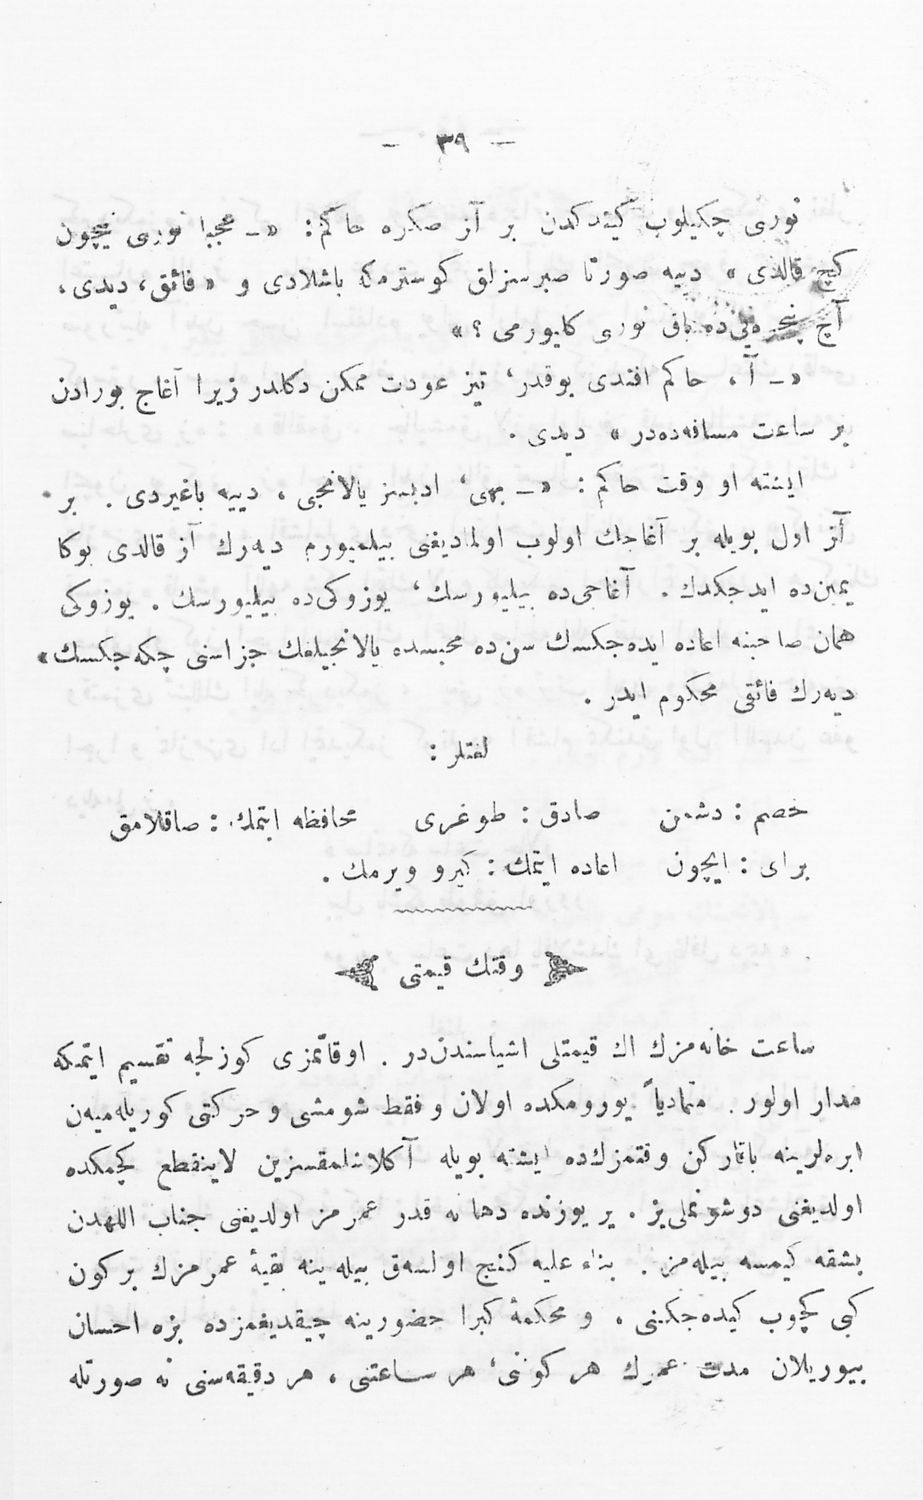 — ٣٩ —
نوری چكیلوب كیتدكدن بر آز صكره حاكم : «ـ عجبا نوری نیچون
كچ قالدی» دییه صورتا صبرسزلق كوسترمكه باشلادی و «فائق، دیدی،
آچ پنجره‌یی‌ده باق نوری كلیورمی ؟»
«ـ آ، حاكم افندی یوقدر، تیز عودت ممكن دكلدر زیرا آغاج بورادن
بر ساعت مسافه‌ده‌در» دیدی .
ایشته او وقت حاكم : «ـ بهی، ادبسز یالانجی، دییه باغیردی . بر
آز اول بویله بر آغاجك اولوب اولمادیغنی بیلمیورم دیه‌رك آز قالدی بوكا
یمین‌ده ایدجكدك . آغاجی‌ده بیلیورسك، یوزوكی‌ده بیلیورسك . یوزوكی
همان صاحبنه اعاده ایده‌جكسك سن‌ده محبسده یالانجیلغك جزاسنی چكه‌جكسك»
دیه‌رك فائقی محكوم ایدر .
لغتلر :
خصم : دشمن صادق : طوغری محافظه ایتمك : صاقلامق
برای : ایچون اعاده ایتمك : كیرو ویرمك .
وقتك قیمتی
ساعت خانه‌مزك اك قیمتلی اشیاسندن‌در . اوقاتمزی كوزلجه تقسیم ایتمكه
مدار اولور . متمادیاً یورومكده اولان و فقط شومشی و حركتی كوریله‌میه‌ن
ابره‌لرینه باقاركن وقتمزك‌ده ایشته بویله آكلاشلمقسزین لاینقطع كچمكده
اولدیغنی دوشونملی‌یز . یر یوزنده دها نه قدر عمرمز اولدیغنی جناب اللهدن
بشقه كیمسه بیله‌مز . بناء علیه كنج اولسه‌ق بیله ینه بقیهٔ عمرمزك بر كون
كبی كچوب كیده‌جكنی، و محكمهٔ كبرا حضورینه چیقدیغمزده بزه احسان
بیوریلان مدت عمرك هر كونی، هر ساعتنی، هر دقیقه‌سنی نه صورتله